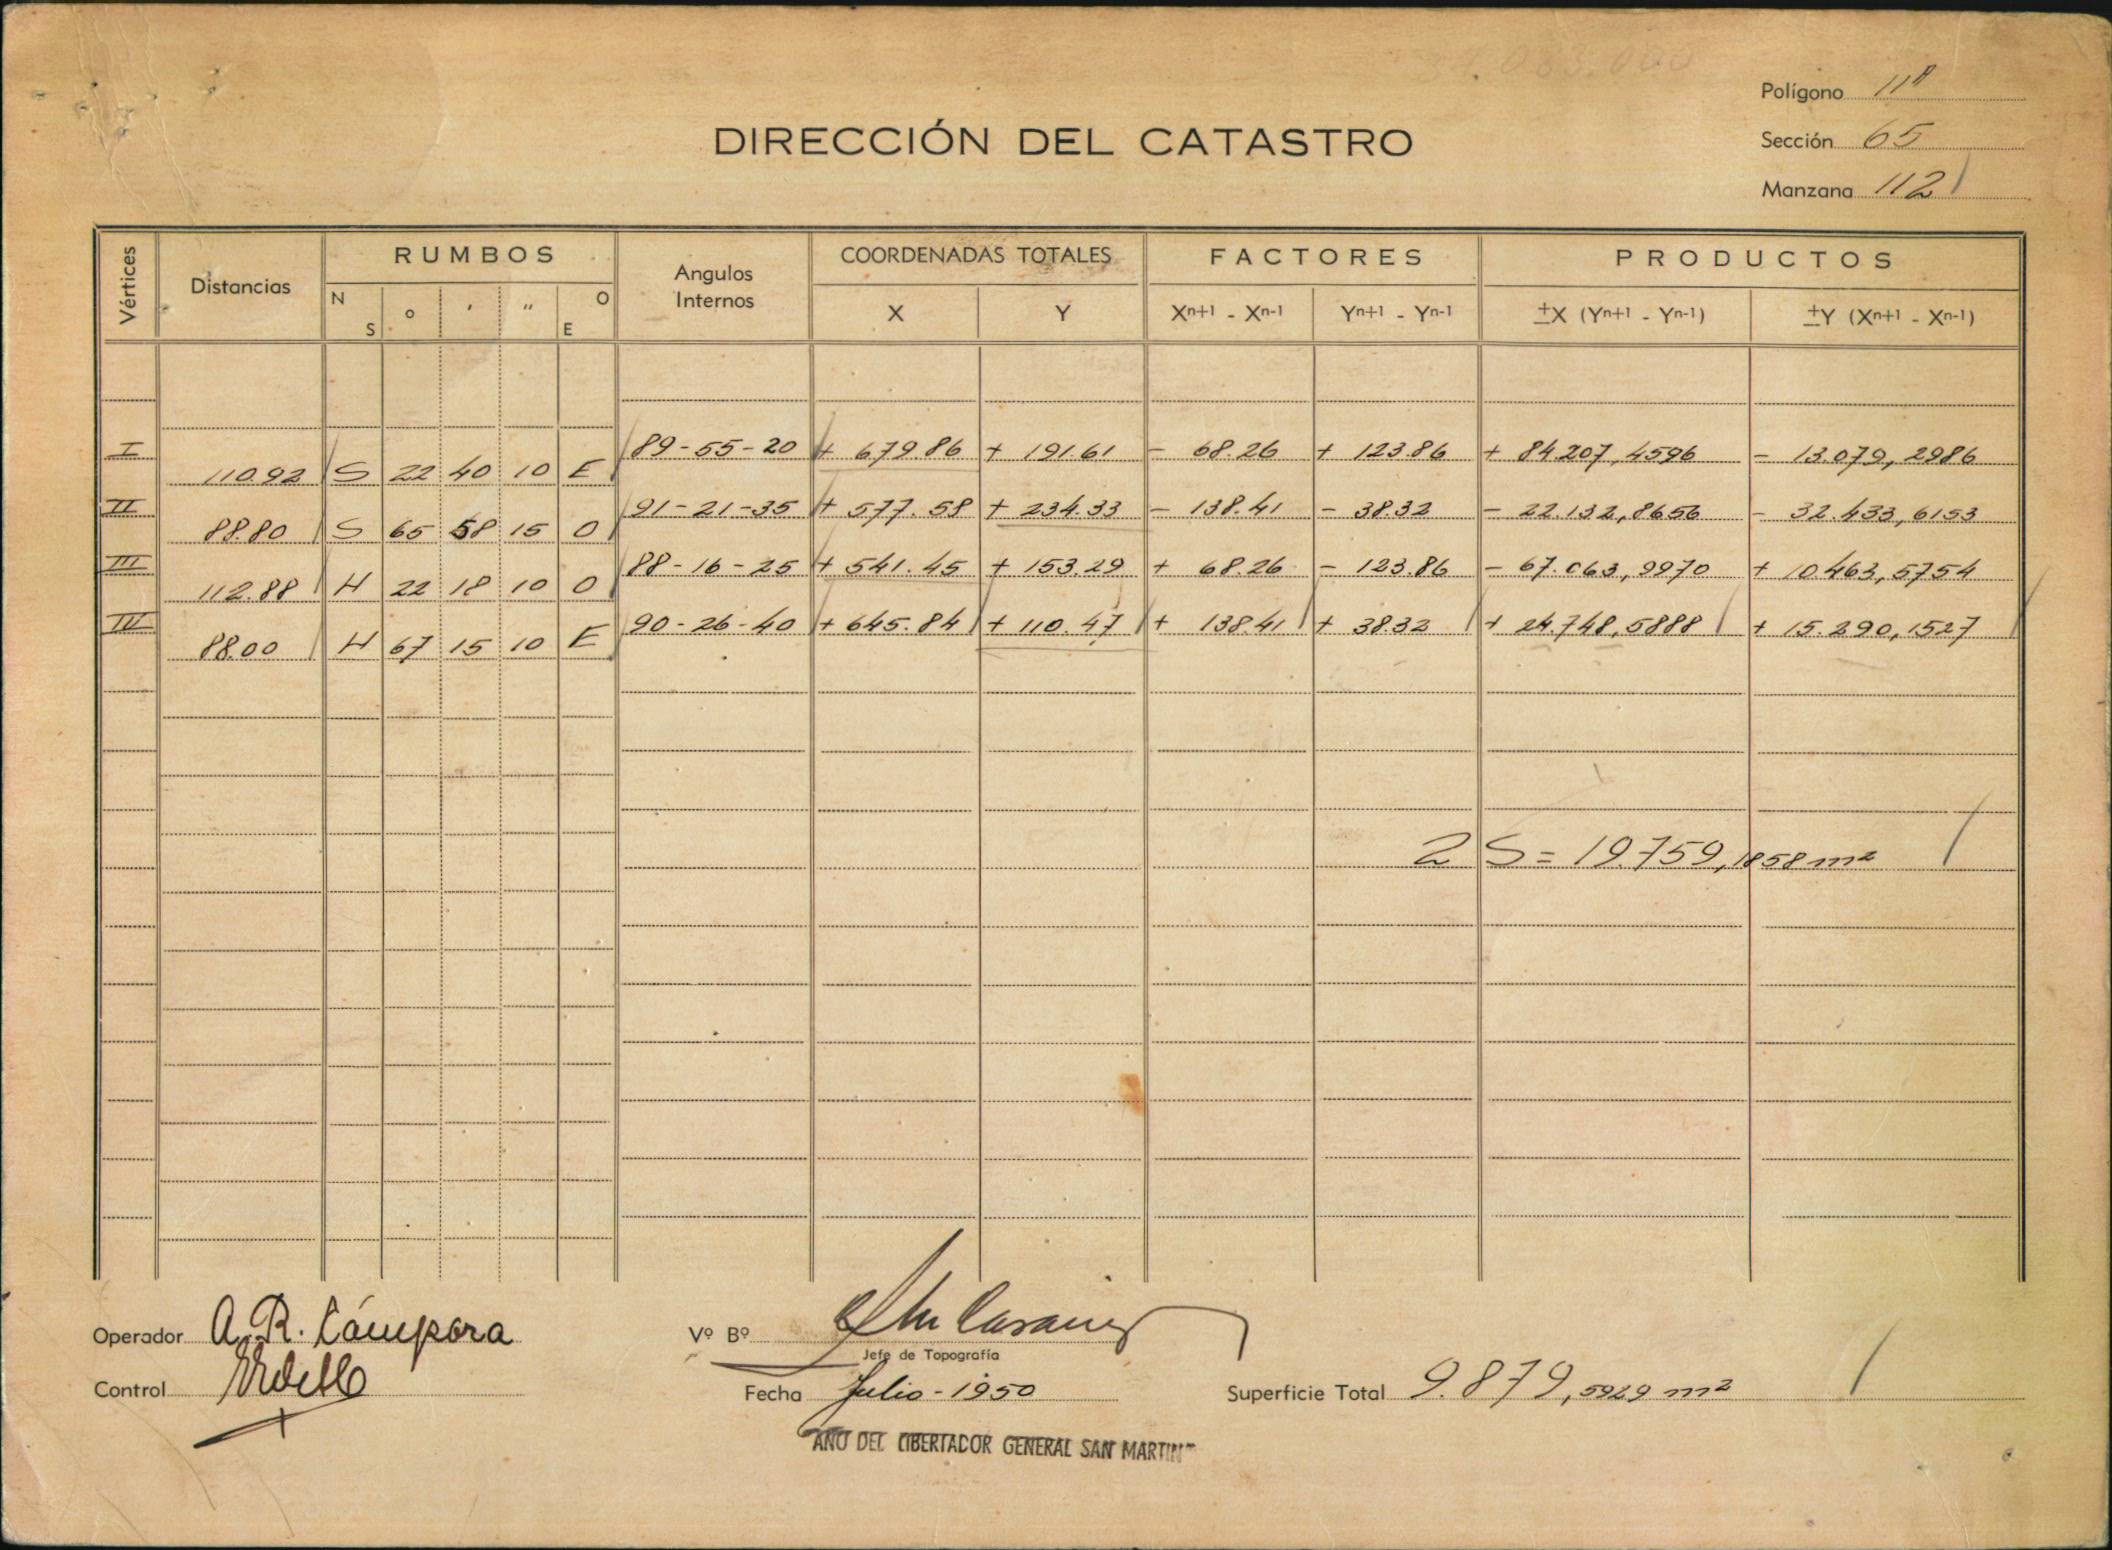 Polígono 11ª
DIRECCIÓN DEL CATASTRO
Sección 65
Manzana 112
Vértices Distancias RUMBOS Angulos Internos COORDENADAS TOTALES FACTORES PRODUCTOS
N S ° ' " O E X Y Xn+1 - Xn-1 Yn+1 - Yn-1 ±X (Yn+1 - Yn-1) ±Y (Xn+1 - Xn-1)
I 89-55-20 + 679.86 + 191.61 - 68.26 + 123.86 + 84.207,4596 - 13.079,2986
110.92 S 22 40 10 E
II 91-21-35 + 577.58 + 234.33 - 138.41 - 38.32 - 22.132,8656 - 32.433,6153
88.80 S 65 58 15 O
III 88-16-25 + 541.45 + 153.29 + 68.26 - 123.86 - 67.063,9970 + 10.463,5754
112.88 N 22 18 10 O
IV 90-26-40 + 645.84 + 110.47 + 138.41 + 38.32 + 24.748,5888 + 15.290,1527
88.00 N 67 15 10 E
2 S = 19.759,1858 m²
Operador A. R. Cámpora
Vº Bº
Jefe de Topografía
Control
Fecha Julio - 1950
Superficie Total 9.879,5929 m²
AÑO DEL LIBERTADOR GENERAL SAN MARTIN